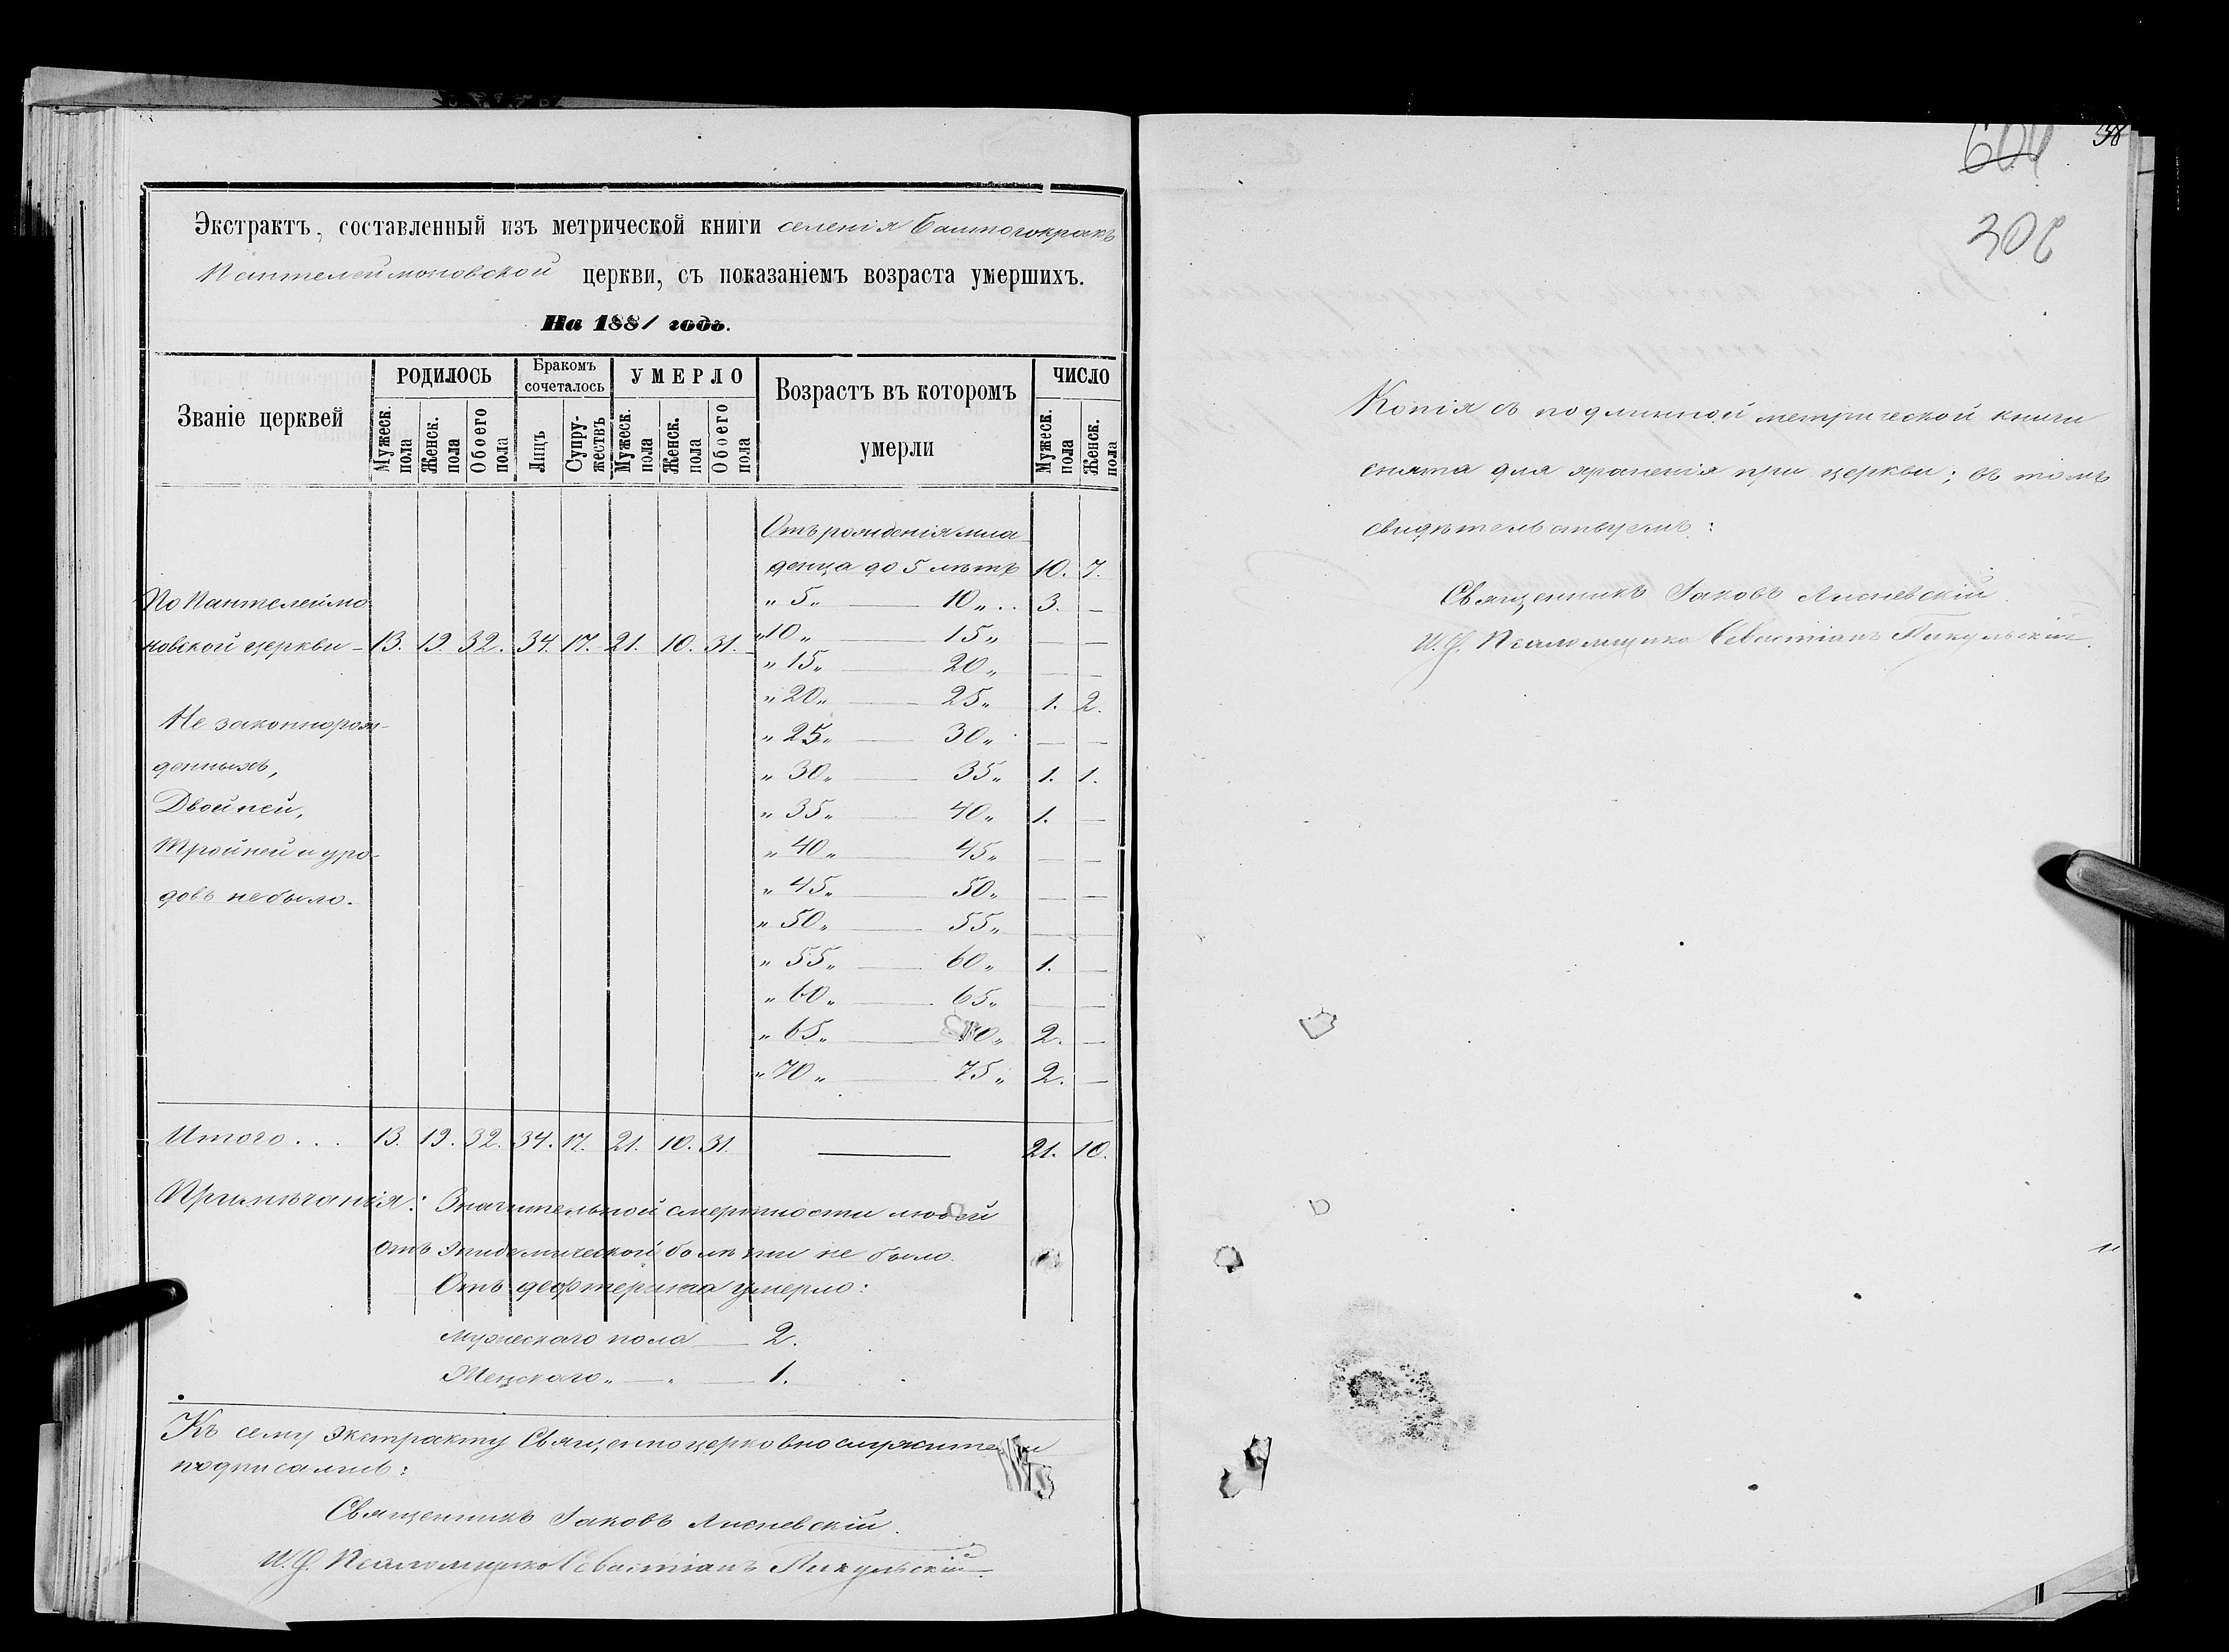 Экстрактъ, составленный изъ метрической книги селенія
Пантелеймоновской церкви, съ показаніемъ возраста умершихъ.
На 1881 годъ.
Званіе церквей
РОДИЛОСЬ
Мужеск. пола
Женск. пола
Обоего пола
Бракомъ сочеталось
Лицъ
Супружествъ
УМЕРЛО
Мужеск. пола
Женск. пола
Обоего пола
Возрастъ въ которомъ
умерли
ЧИСЛО
Мужеск. пола
Женск. пола
Отъ рожденія мла
денца до 5 лѣтъ 10. 7.
По Пантелеймо-
„ 5 „ — 10 „ . . 3. —
новской церкви — 13. 19. 32. 34. 17. 21. 10. 31.
„ 10 „ — 15 „ — —
„ 15 „ — 20 „ — —
„ 20 „ — 25 „ 1. 2.
Не законнорож-
„ 25 „ — 30 „ — —
денныхъ,
„ 30 „ — 35 „ 1. 1.
Двойней,
„ 35 „ — 40 „ 1. —
Тройней и уро-
„ 40 „ — 45 „ — —
довъ не было.
„ 45 „ — 50 „ — —
„ 50 „ — 55 „ — —
„ 55 „ — 60 „ 1. —
„ 60 „ — 65 „ — —
„ 65 „ — 70 „ 2. —
„ 70 „ — 75 „ 2. —
Итого . . . 13. 19. 32. 34. 17. 21. 10. 31. — 21. 10.
Примѣчанія: Значительной смертности людей
отъ эпидемической болѣзни не было.
Отъ дефтерита умерло:
мужескаго пола — 2.
Женскаго „ — „ — 1.
Къ сему экстракту Священноцерковнослужители
подписались:
Священникъ Іаковъ Лисневскій.
И. д. Псаломщика Севастіанъ Пикульскій.
38
604
306
Копія съ подлинной метрической книги
снята для храненія при церкви; въ томъ
свидѣтельствуемъ:
Священникъ Іаковъ Лисневскій.
И. д. Псаломщика Севастіанъ Пикульскій.